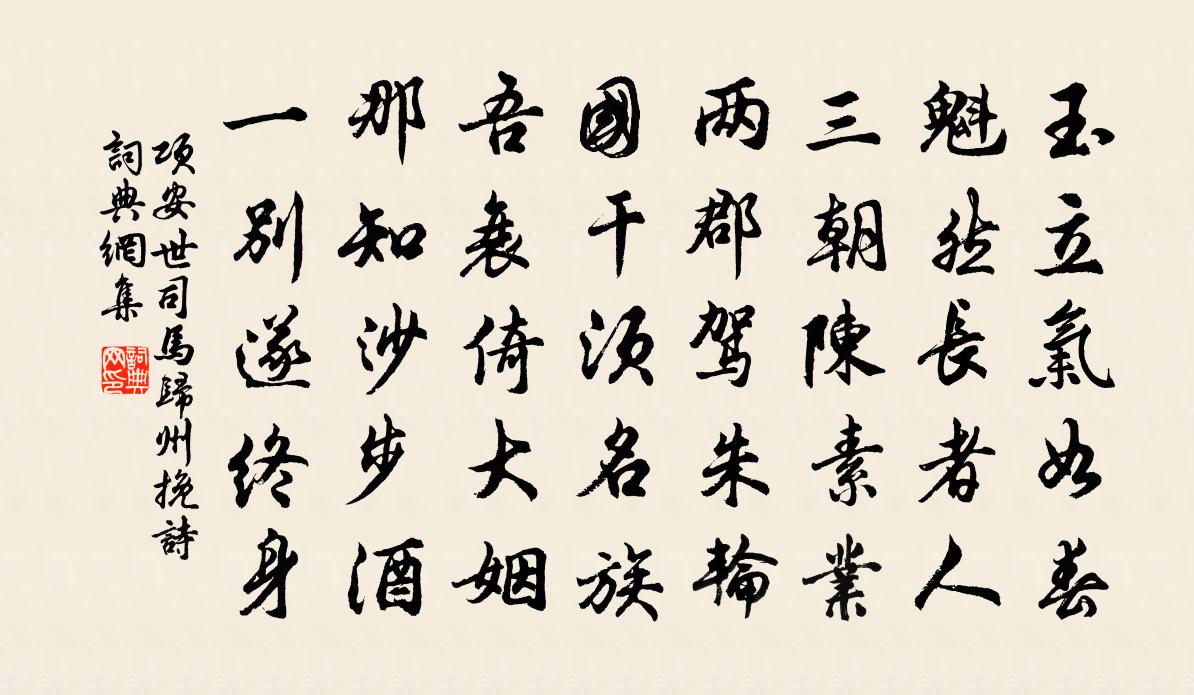 玉立氣如春
魁然長者人
三朝陳素業
兩郡駕朱輪
國干須名族
吾衰倚大姻
那知沙步酒
一別遂終身
項安世司馬歸州挽詩
詞典網集
詞典网印